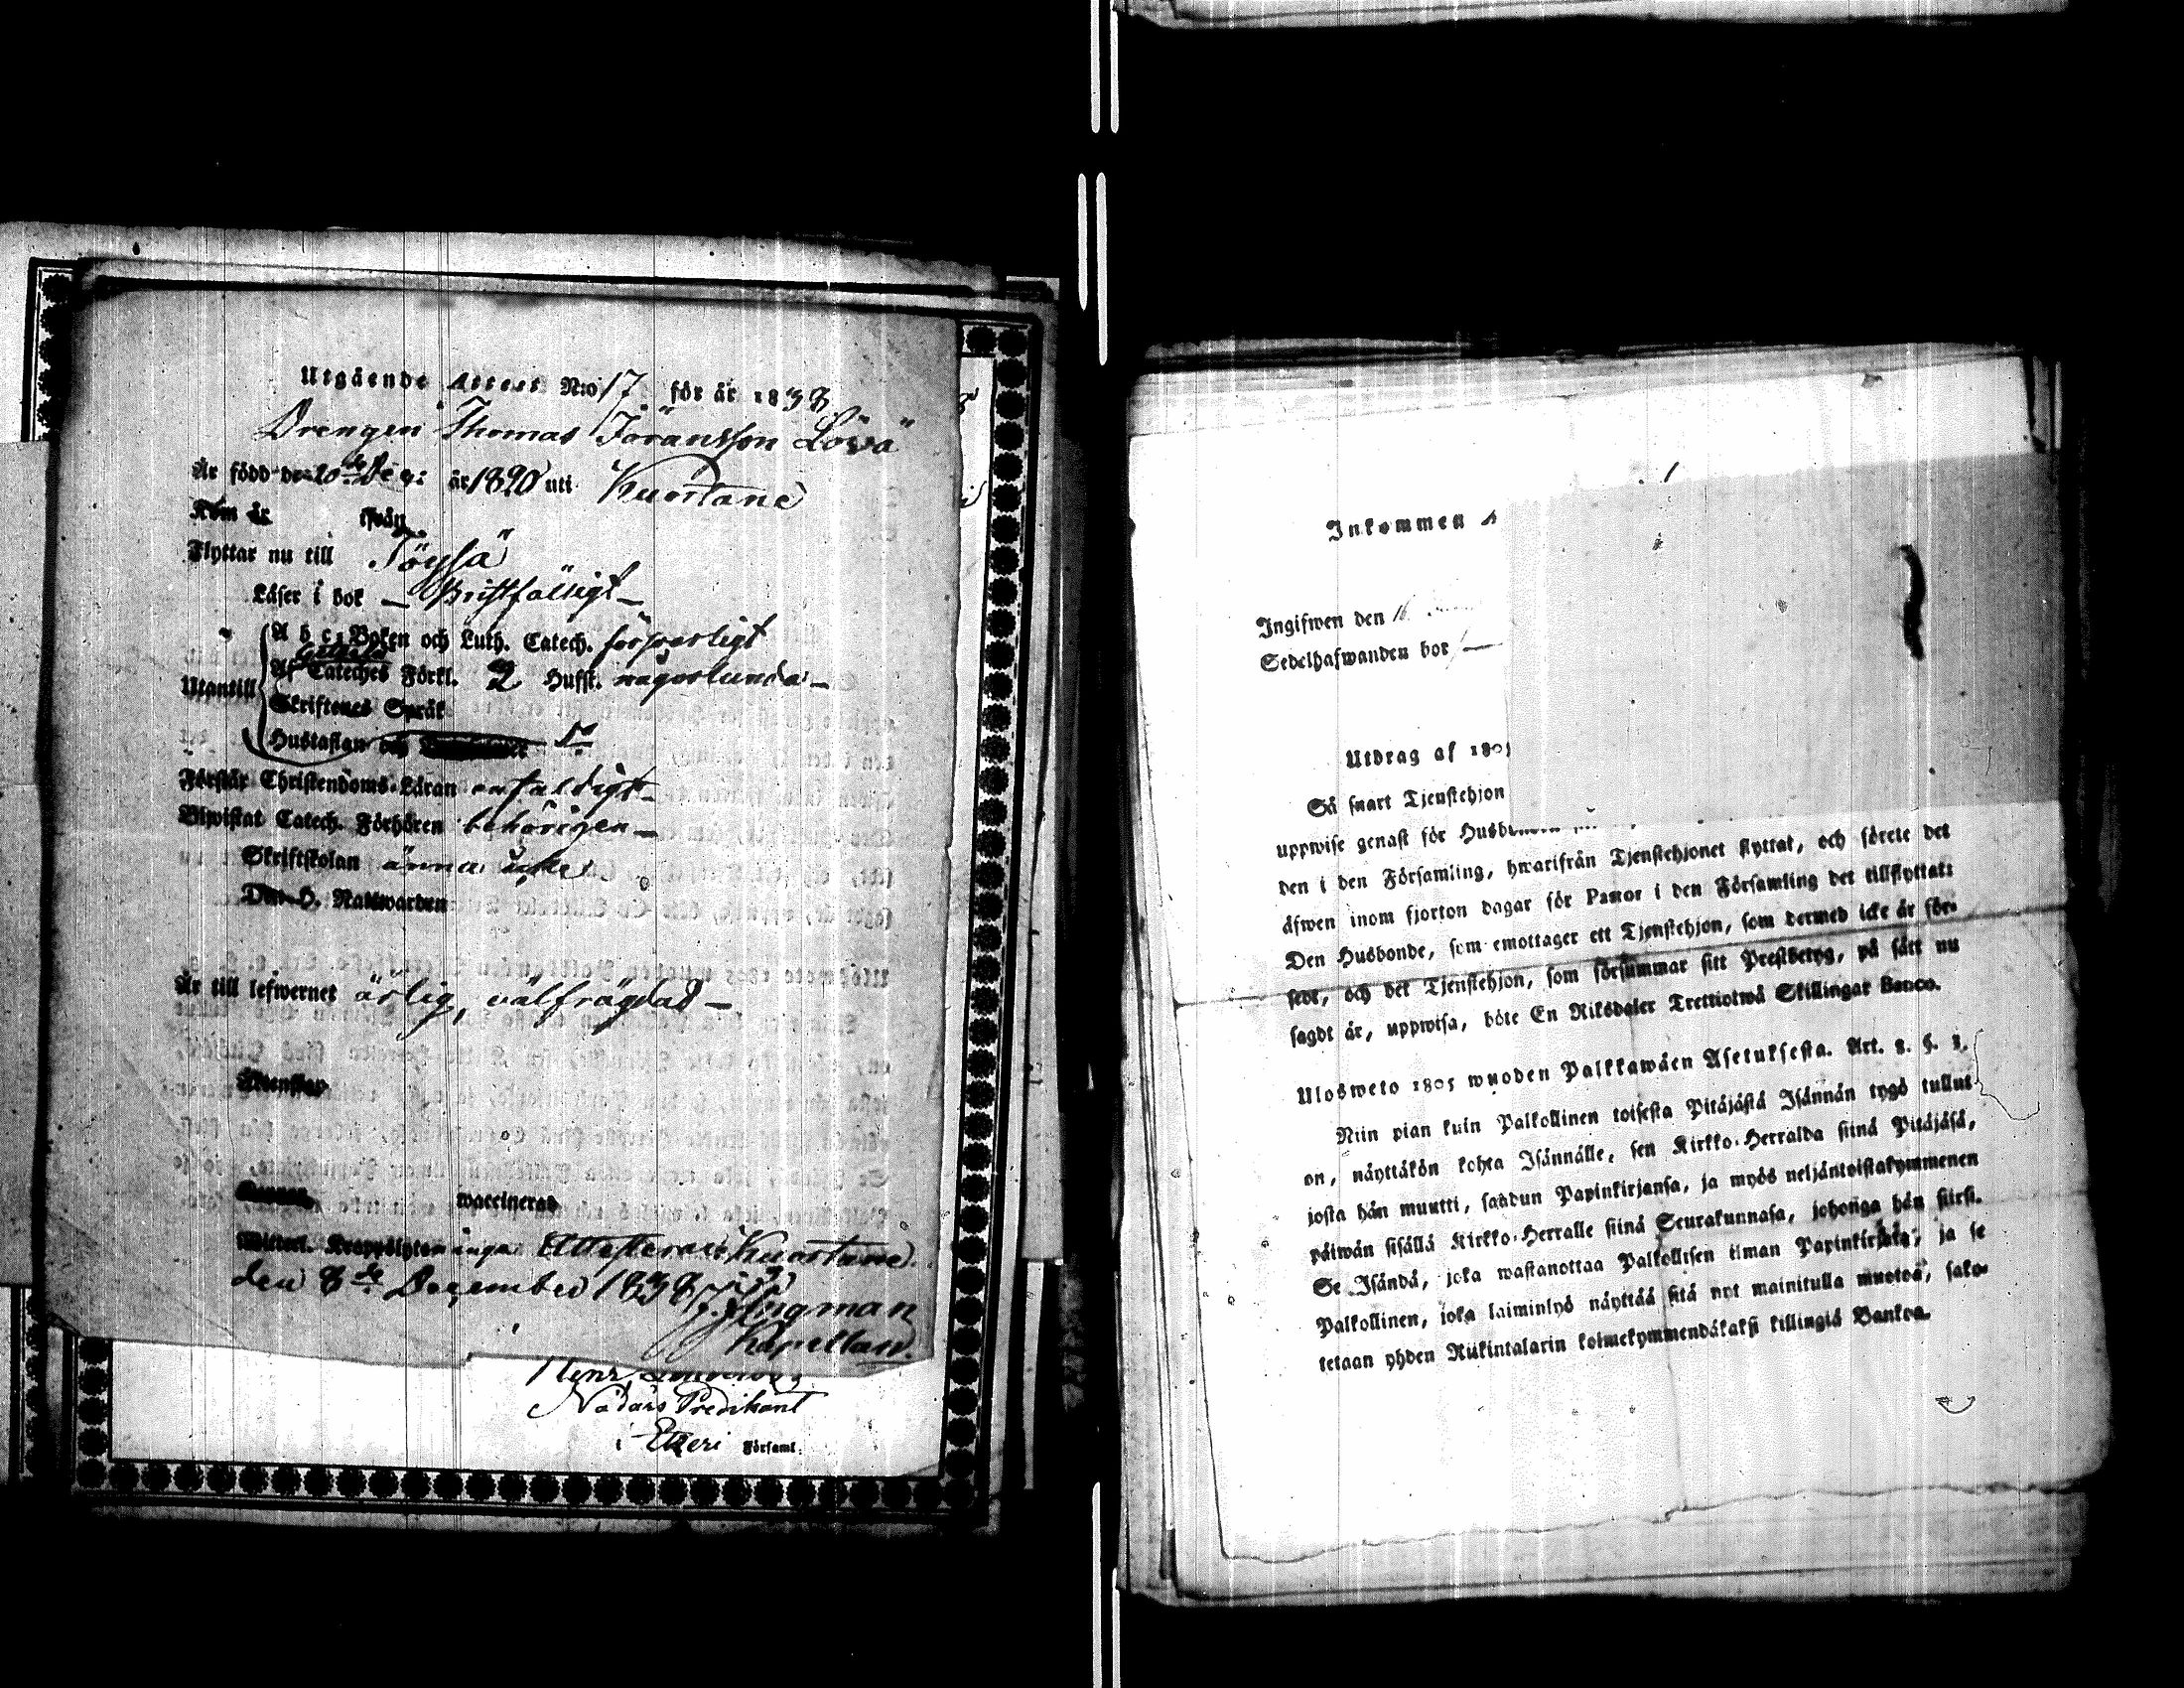 Utgående Attest N:o 17 för år 1838
Drengen Thomas Jöransson Löwä
Är född den 20de Dec: år 1820 uti Kuortane
Kom år ifrån
Flyttar nu till Töysä
Läser i bok — Bristfälligt —
A b c-Boken och Luth. Catech. försvarligt
Af Cateches Förkl. 2 Hufst. någorlunda —
Utantill
Skriftenes Språk
Hustaflan och
Förstår Christendoms-Läran enfaldigt —
Biwistat Catech. Förhören behörigen —
Skriftskolan ännu icke
Den H. Nattwarden
Är till lefwernet ärlig, välfrägdad —
waccinerad
inga Attesteras i Kuortane
den 8de December 1838
Ingman
Kapellan.
Nådårs Predikant
i Etseri Församl.
Inkommen
Ingifwen den 16
Sedelhafwanden bor
Utdrag af 1805
Så snart Tjenstehjon
uppwise genast för
den i den Församling, hwarifrån Tjenstehjonet flyttat, och förete det
äfwen inom fjorton dagar för Pastor i den Församling det tillflyttat:
Den Husbonde, som emottager ett Tjenstehjon, som dermed icke är för-
sedt, och det Tjenstehjon, som försummar sitt Prestbetyg, på sätt nu
sagdt är, uppwisa, böte En Riksdaler Trettiotwå Skillingar Banco.
Ulosweto 1805 wuoden Palkkawäen Asetuksesta. Art. 8. §. 3.
Niin pian kuin Palkollinen toisesta Pitäjästä Isännän tygö tullut
on, näyttäkön kohta Isännälle, sen Kirkko-Herralda siinä Pitäjäsä,
josta hän muutti, saadun Papinkirjansa, ja myös neljäntoistakymmenen
päiwän sisällä Kirkko-Herralle siinä Seurakunnasa, johonga hän siirsi.
Se Isändä, joka wastanottaa Palkollisen ilman Papinkirjata, ja se
Palkollinen, joka laiminlyö näyttää sitä nyt mainitulla muotoa, sako-
tetaan yhden Riikintalarin kolmekymmendäkaksi killingiä Bankoa.